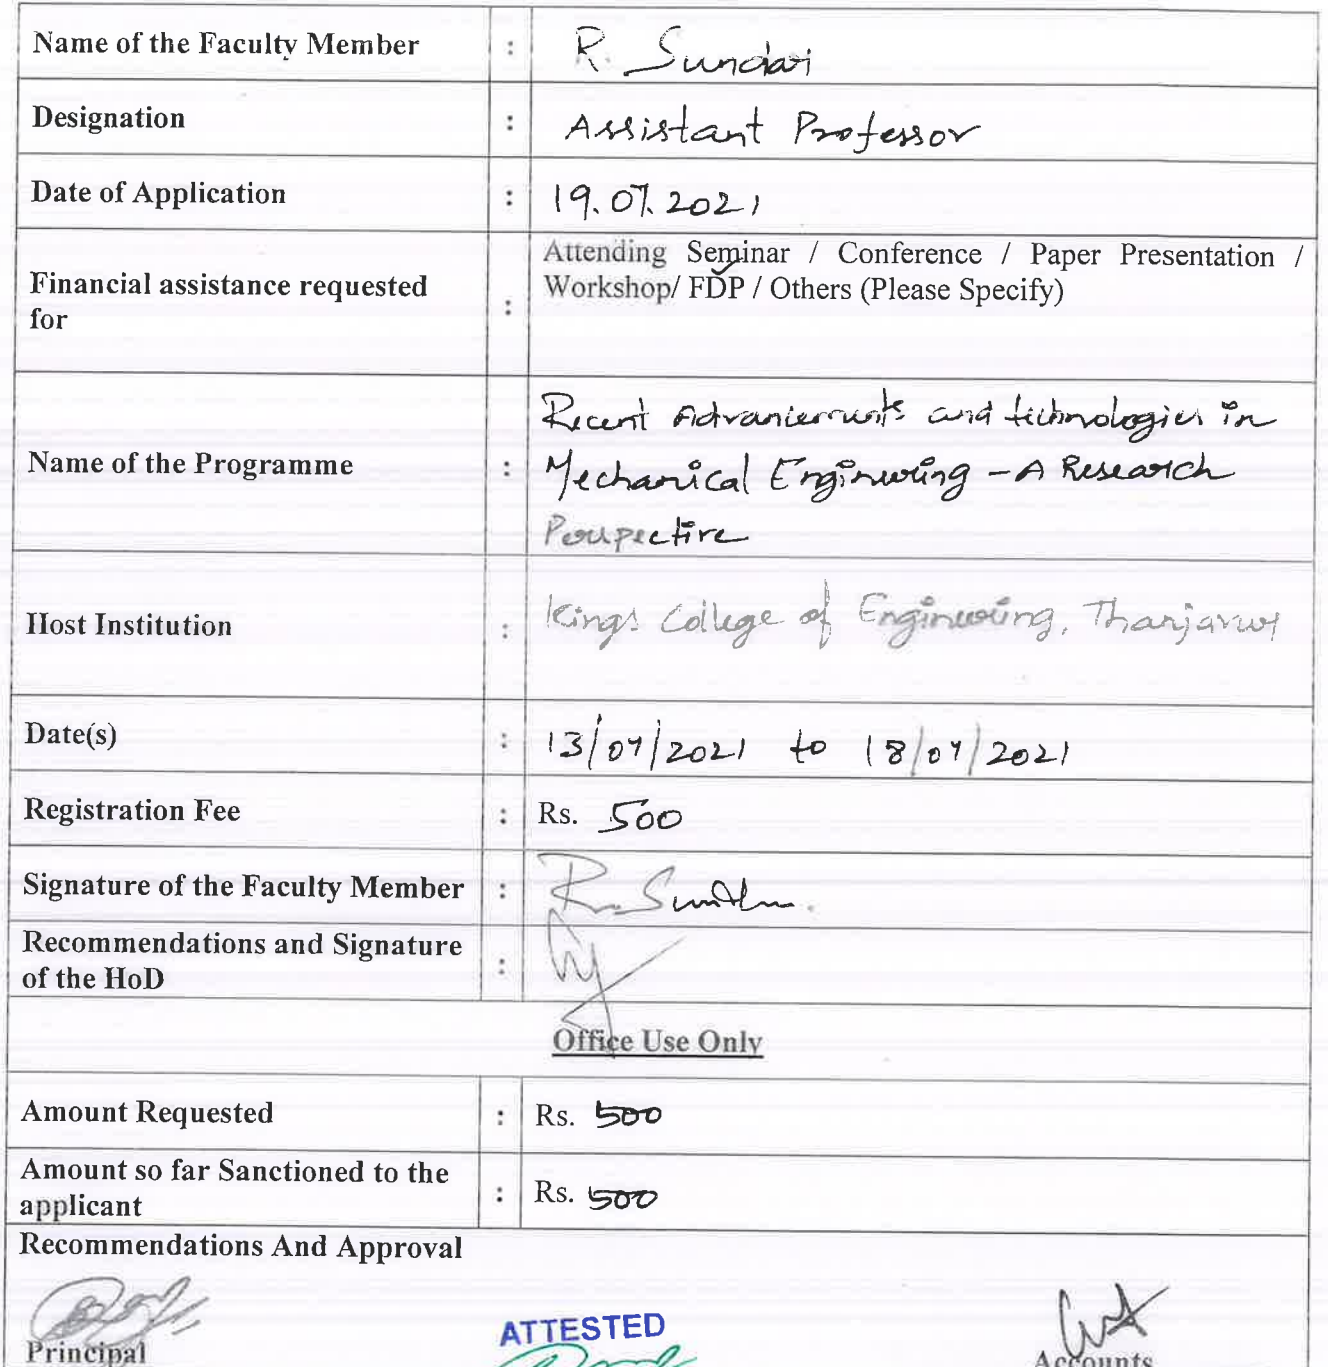 Name of the Faculty Member : R. Sundari
Designation : Assistant Professor
Date of Application : 19.07.2021
Financial assistance requested for : Attending Seminar / Conference / Paper Presentation /
Workshop/ FDP / Others (Please Specify)
Name of the Programme : Recent Advancements and technologies in
Mechanical Engineering - A Research
Perspective
Host Institution : Kings College of Engineering, Thanjavur
Date(s) : 13/07/2021 to 18/07/2021
Registration Fee : Rs. 500
Signature of the Faculty Member :
Recommendations and Signature
of the HoD :
Office Use Only
Amount Requested : Rs. 500
Amount so far Sanctioned to the
applicant : Rs. 500
Recommendations And Approval
ATTESTED
Principal
Accounts